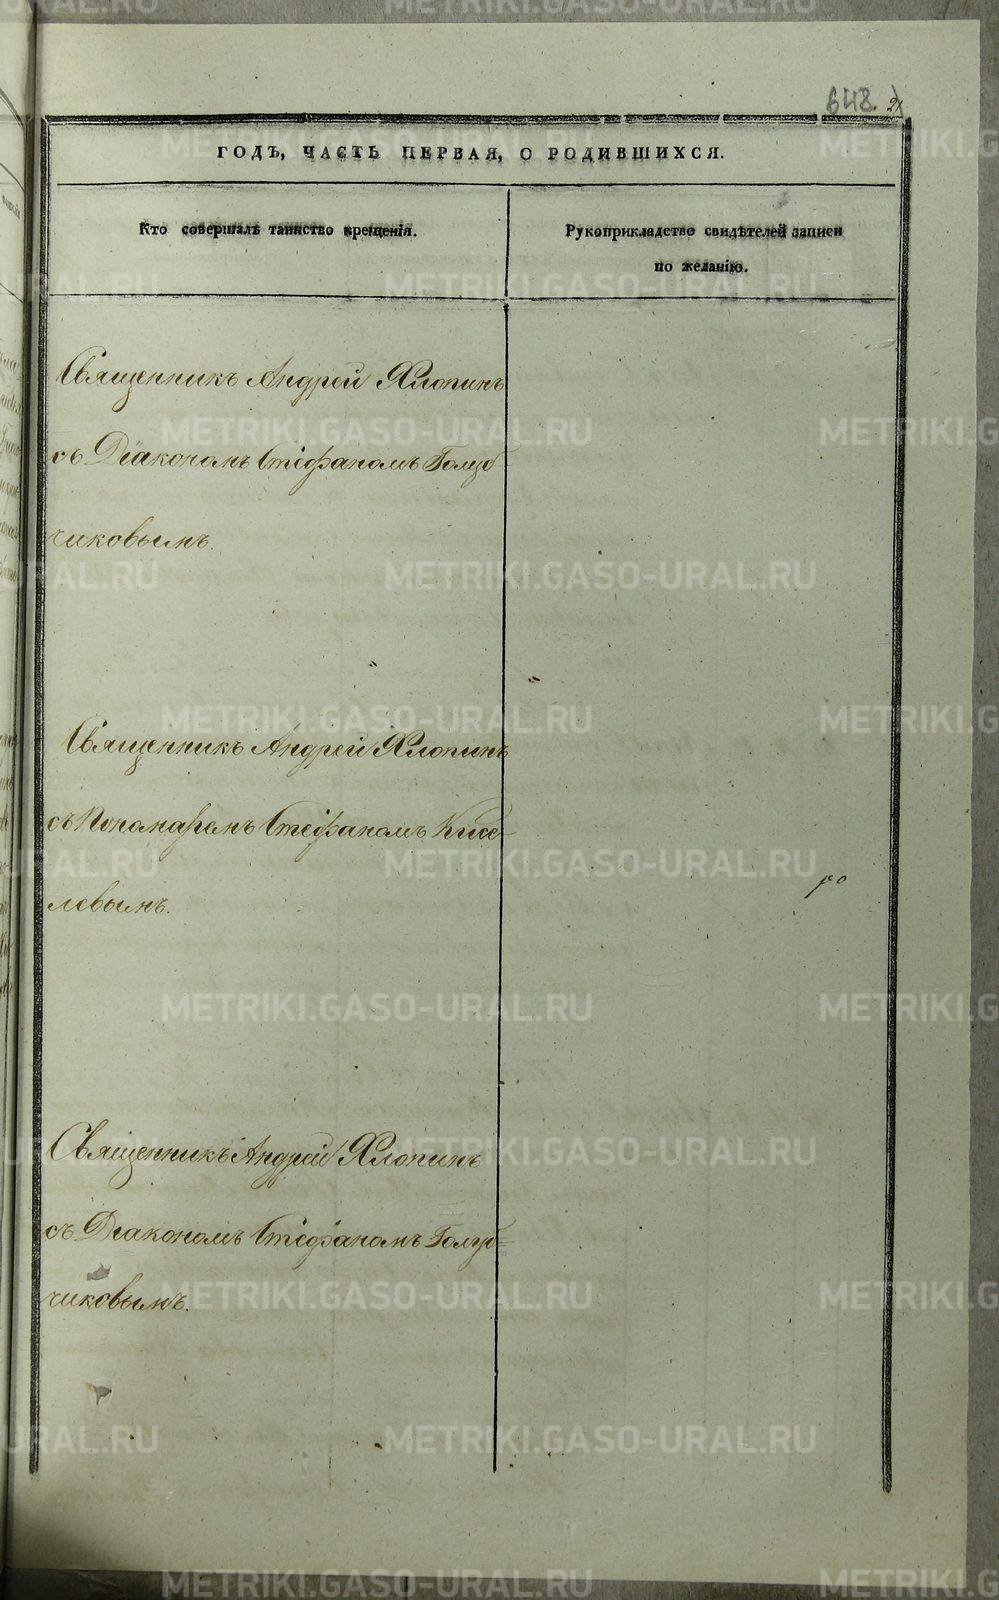 648. 21
ГОДЪ, ЧАСТЬ ПЕРВАЯ, О РОДИВШИХСЯ.
Кто совершалъ таинство крещенія.
Рукоприкладство свидѣтелей записи
по желанію.
Священникъ Андрей Хлопинъ
съ Діакономъ Стефаномъ Голуб
чиковымъ.
Священникъ Андрей Хлопинъ
съ Пономаремъ Стефаномъ Кисе-
левымъ.
Священникъ Андрей Хлопинъ
съ Діакономъ Стефаномъ Голуб=
чиковымъ.
METRIKI.GASO-URAL.RU